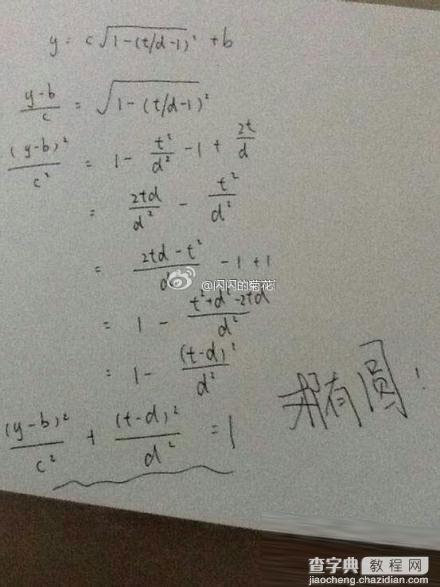 y = c√(1-(t/d-1)²) + b
(y-b)/c = √(1-(t/d-1)²)
(y-b)²/c² = 1 - t²/d² - 1 + 2t/d
= 2td/d² - t²/d²
= (2td-t²)/d² - 1 + 1
@闪闪的菊花
= 1 - (t²+d²-2td)/d²
= 1 - (t-d)²/d²
(y-b)²/c² + (t-d)²/d² = 1
椭圆!
查字典 教程网
jiaocheng.chazidian.com